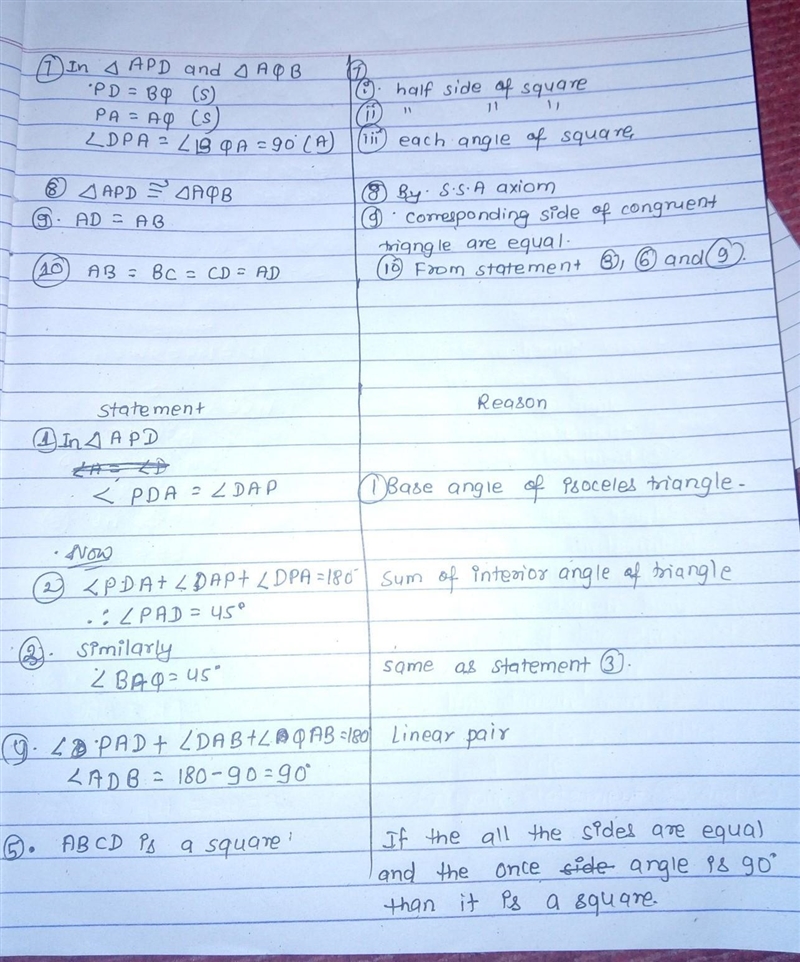 ⑦ In △ APD and △ AQB ⑦
PD = BQ (S) (i). half side of square
PA = AQ (S) (ii) " " "
∠DPA = ∠BQA = 90° (A) (iii) each angle of square,
⑧ △APD ≅ △AQB ⑧ By. S.S.A axiom
⑨. AD = AB ⑨. corresponding side of congruent
triangle are equal.
⑩ AB = BC = CD = AD ⑩ From statement ③, ⑥ and ⑨.
Statement Reason
① In △ APD
∠A = ∠D
∠ PDA = ∠DAP ① Base angle of isoceles triangle.
. Now
② ∠PDA + ∠DAP + ∠DPA = 180° Sum of interior angle of triangle
∴ ∠PAD = 45°
③. Similarly
∠BAQ = 45° same as statement ③.
④. ∠PAD + ∠DAB + ∠QAB = 180 Linear pair
∠ADB = 180 - 90 = 90°
⑤. ABCD is a square If the all the sides are equal
and the once side angle is 90°
than it is a square.